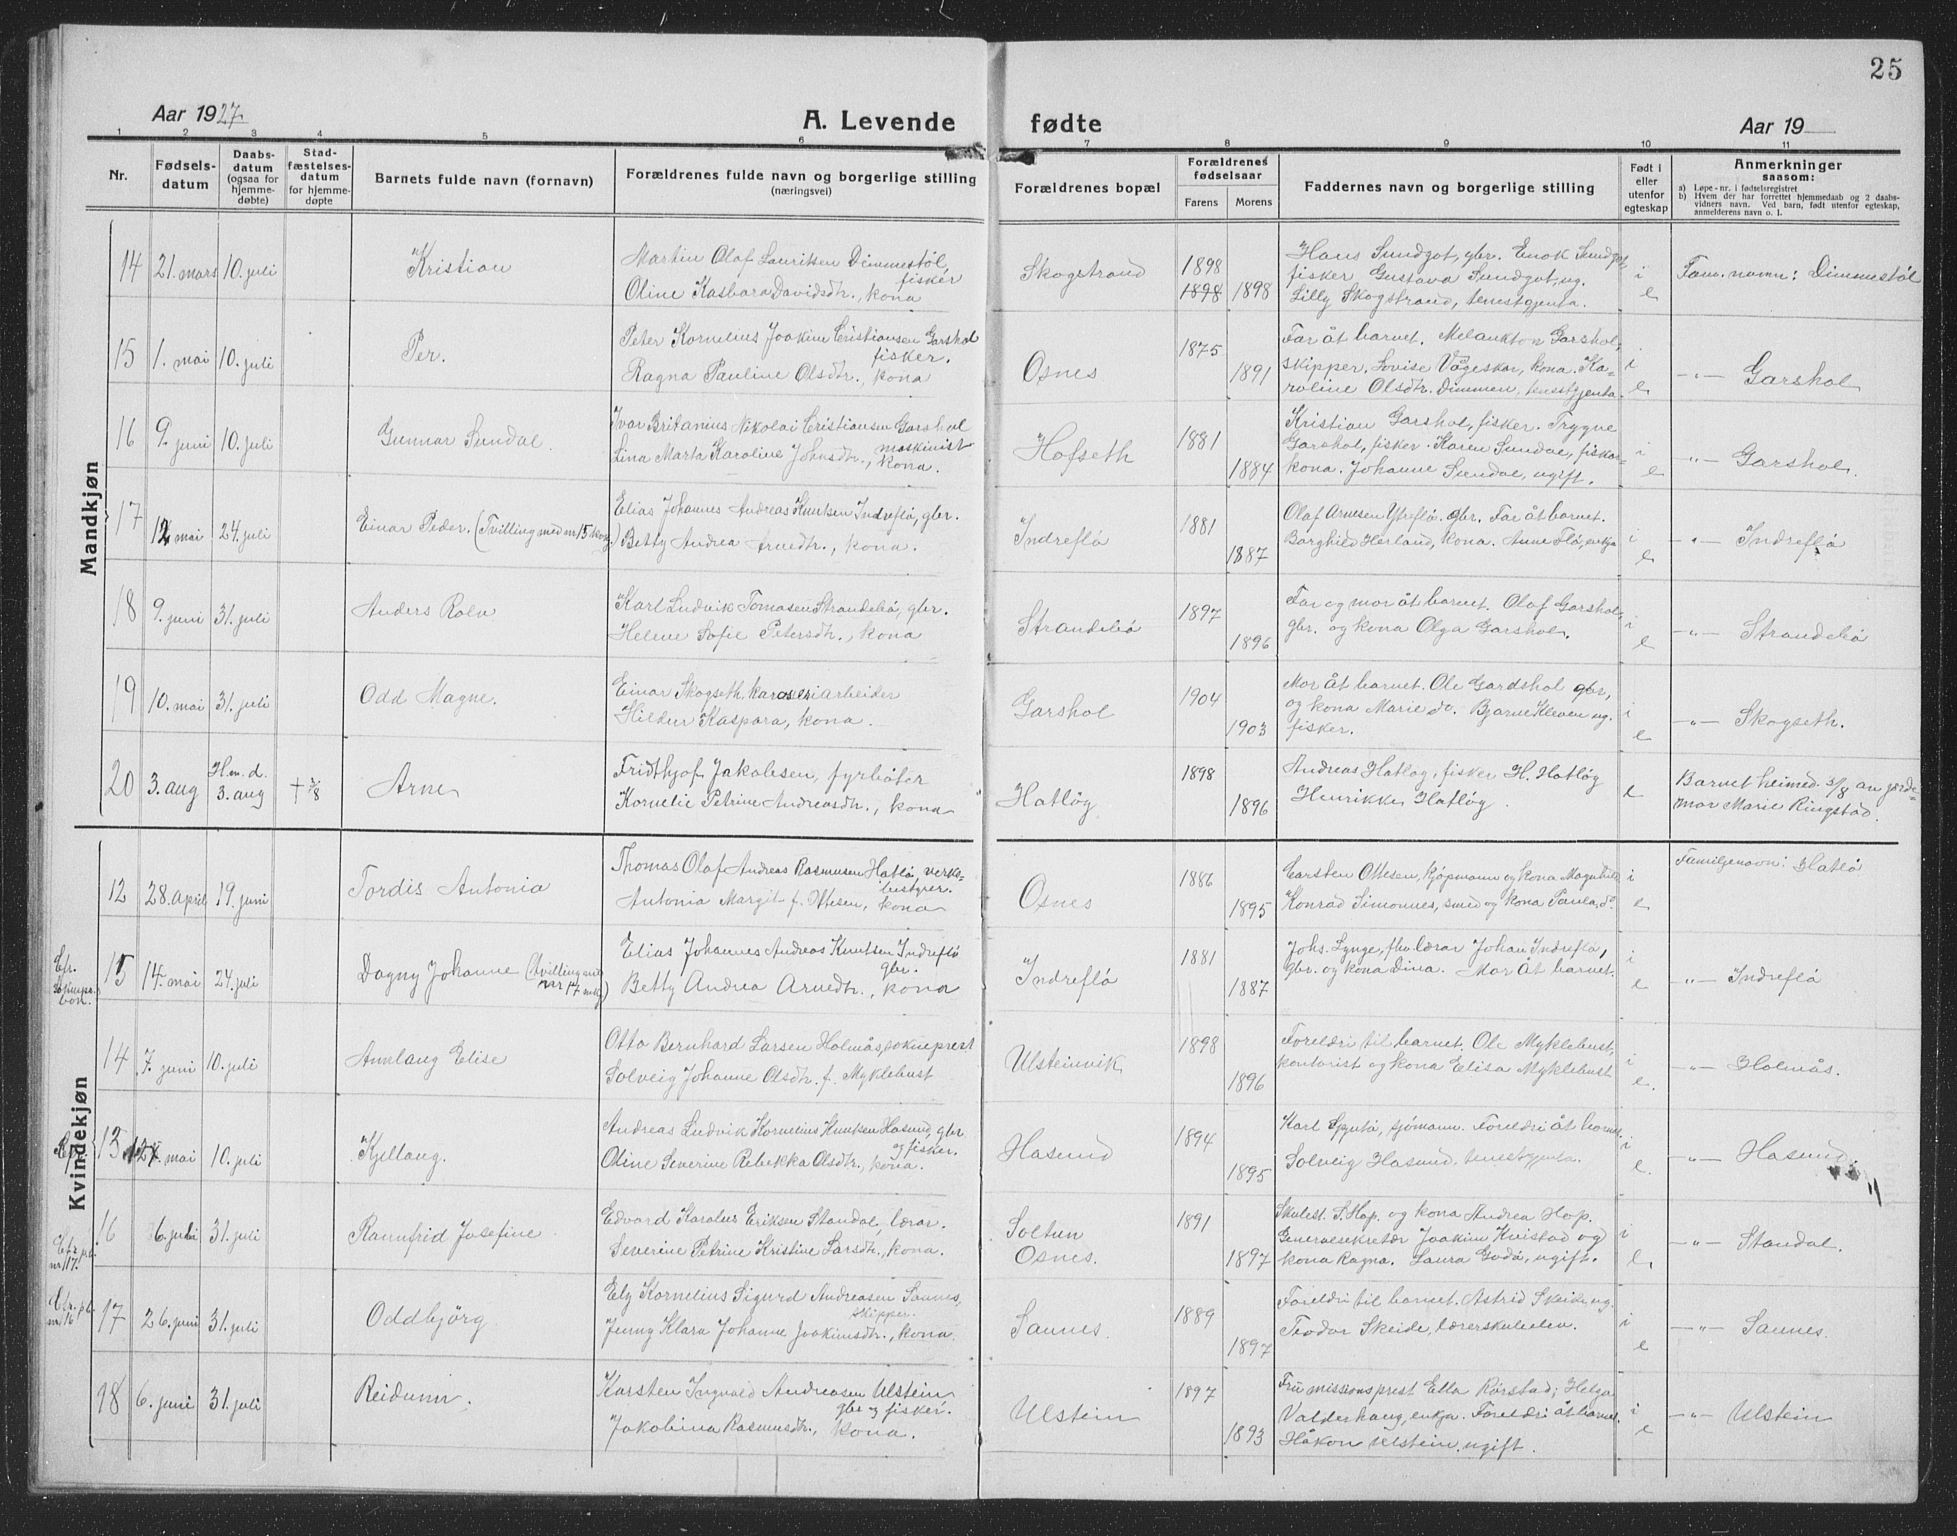 25
Aar 1927
A. Levende fødte
Aar 19
1 2 3 4 5 6 7 8 9 10 11
Nr.
Fødsels-
datum
Daabs-
datum
(ogsaa for
hjemme-
døbte)
Stad-
fæstelses-
datum
for hjemme-
døpte
Barnets fulde navn (fornavn)
Forældrenes fulde navn og borgerlige stilling
(næringsvei)
Forældrenes bopæl
Forældrenes
fødselsaar
Farens Morens
Faddernes navn og borgerlige stilling
Født i
eller
utenfor
egteskap
Anmerkninger
saasom:
a) Løpe-nr. i fødselsregistret
b) Hvem der har forrettet hjemmedaab og 2 daabs-
vidners navn. Ved barn, født utenfor egteskap,
anmelderens navn o. l.
Mandkjøn
14 21. mars 10. juli Kristian
Martin Olaf Lauritsen Dimmestöl
fisker
Oline Kasbara Davidsdtr., kona
Skogstrand
1898
1898 1898
Hans Sundgot, gbr. Enok Sundgot,
fisker Gustava Sundgot, ug.
Lilly Skogstrand, tenestgjenta.
i
e
Fam. namn: Dimmestöl
15 1. mai 10. juli Per.
Peter Kornelius Joakim Cristiansen Garshol
fisker.
Ragna Pauline Olsdtr., kona
Osnes
1875
1891
Far åt barnet. Melankton Garshol,
skipper. Lovise Vågeskar, kona. Ka-
roline Olsdtr. Dimmen, tenestgjenta.
i
e
-"- Garshol
16 9. juni 10. juli Gunnar Sundal.
Ivar Britanius Nikolai Cristiansen Garshol
maskinist
Lina Marta Karoline Johnsdtr., kona.
Hofseth
1881
1884
Kristian Garshol, fisker. Trygve
Garshol, fisker. Karen Sundal, fiskar-
kona. Johanne Sundal, ugift.
i
e
-"- Garshol.
17 12 mai 24. juli Einar Peder. (Tvilling med nr 15 kvk)
Elias Johannes Andreas Knutsen Indreflö, gbr.
Betty Andrea Arnedtr., kona.
Indreflö
1881
1887
Olaf Arnesen Ytreflö. gbr. Far åt barnet.
Borghild Herland, kona. Anne Flö, enkja
i
e
-"- Indreflö
18 9. juni 31. juli Anders Rolv
Karl Ludvik Tomasen Strandebö, gbr.
Helene Sofie Petersdtr., kona
Strandebö
1897
1896
Far og mor åt barnet. Olaf Garshol,
gbr. og kona Olga Garshol.
i
e
-"- Strandebö
19 10. mai 31. juli Odd Magne.
Einar Skogseth, karosseriarbeider
Hildur Kaspara, kona.
Garshol
1904
1903
Mor åt barnet. Ole Gardshol gbr,
og kona Marie do. Bjarne Kleven ug.
fisker.
i
e
-"- Skogseth.
20 3. aug Hm. d.
3. aug † 3/8 Arne
Fridthjof Jakobsen, fyrböter
Kornelie Petrine Andreasdtr., kona
Hatlög
1898
1896
Andreas Hatlög, fisker H. Hatlög
Henrikke Hatlög.
e
Barnet heimed. 3/8 av jorde-
mor Marie Ringstad.
Kvindekjøn
12 28. april 19. juni Tordis Antonia
Thomas Olaf Andreas Rasmusen Hatlö, verks-
bestyrer.
Antonia Margit f. Ottesen, kona
Osnes
1886
1895
Carsten Ottesen, kjøpmann og kona Magnhild
Konrad Simonnes, smed og kona Paula, do
i
e
Familjenavn: Hatlö
15 14. mai 24. juli Dagny Johanne (tvilling med
nr 17 mk)
Elias Johannes Andreas Knutsen Indreflö
gbr.
Betty Andrea Arnedtr., kona
Indreflö
1881
1887
Johs. Lynge, fhv. lærar Johan Indreflö,
gbr. og kona Dina. Mor åt barnet.
i
e
-"- Indreflö
14 7. juni 10. juli Annlaug Elise
Otto Bernhard Larsen Holmås, sokneprest
Solveig Johanne Olsdtr. f. Myklebust
Ulsteinvik
1898
1896
Foreldri til barnet. Ole Myklebust,
kontorist og kona Elisa Myklebust
i
e.
-"- Holmås.
13 mai 10. juli Kjellaug.
Andreas Ludvik Kornelius Knutsen Hasund, gbr
og fisker.
Oline Severine Rebekka Olsdtr., kona.
Hasund
1894
1895
Karl sjömann. Foreldri åt barnet.
Solveig Hasund, tenestgjenta.
i
e.
-"- Hasund.
16 6. juli 31. juli Rannfrid Josefine
Edvard Karolus Eriksen Standal, lærar.
Severine Petrine Kristine Larsdtr., kona.
Soltun
Osnes.
1891
1897
Skulest. S. Hop. og kona Andrea Hop.
Generalsekretær Joakim Kvistad og
kona Ragna. Laura Godö, ugift.
i
e.
-"- Standal.
17 26. juni 31. juli Oddbjörg
Ely Kornelius Sigurd Andreasen Saunes,
skipper.
Jenny Klara Johanne Joakimsdtr., kona.
Saunes.
1889
1897
Foreldri til barnet. Astrid Skeide, ug.
Teodor Skeide, lærerskuleelev.
i
e
-"- Saunes.
18 6. juni 31. juli Reidunn.
Karsten Ingvald Andreasen Ulstein
gbr og fisker.
Jakobina Rasmusdtr., kona.
Ulstein
1897
1893
Fru missionsprest Etla Rörstad; Helga
Valderhaug, enkja. Foreldri åt barnet.
Håkon Ulstein, ugift.
i
e
-"- Ulstein